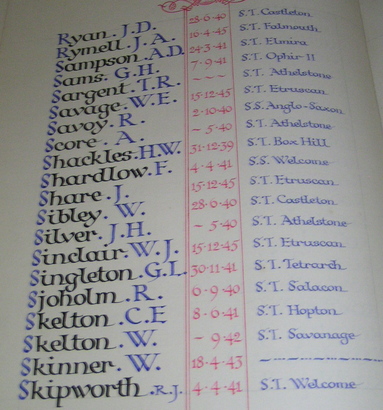 Ryan . J.D. 28-6-40 S.T. Castleton
Rymell . J. A. 16-4-45 S.T. Falmouth
Sampson . A.D. 24-3-41 S.T. Elmira
Sams . G.H. 7-9-41 S.T. Ophir 11
Sargent . T.R. - - - S.T. Athelstone
Savage . W.E. 15-12-45 S.T. Etruscan
Savoy . R. 2-10-40 S.S. Anglo-Saxon
Score . A. - 5-40 S.T. Athelstone
Shackles . H.W. 31-12-39 S.T. Box Hill
Shardlow . F. 4-4-41 S.S. Welcome
Share . J. 15-12-45 S.T. Etruscan
Sibley . W. 28-6-40 S.T. Castleton
Silver . J.H. - 5-40 S.T. Athelstone
Sinclair . W. J. 15-12-45 S.T. Etruscan
Singleton . G.L. 30-11-41 S.T. Tetrarch
Sjoholm . R. 6-9-40 S.T. Salacon
Skelton . C.E 8-6-41 S.T. Hopton
Skelton . W. - 9-42 S.T. Savanage
Skinner . W. 18-4-43 - - - -
Skipworth . R.J. 4-4-41 S.T. Welcome